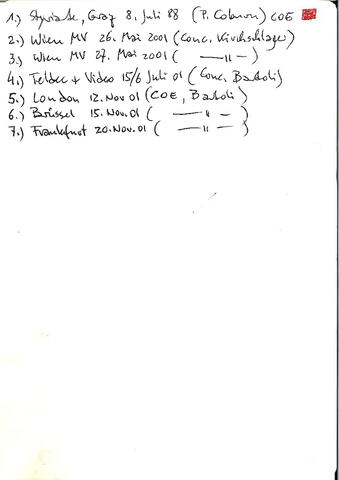 1.) Styriarte, Graz 8. Juli 88 (P. Coburn) COE
2.) Wien MV 26. Mai 2001 (Conc. Kirchschlager)
3.) Wien MV 27. Mai 2001 ( — " — )
4.) Teldec + Video 15/6 Juli 01 (Conc. Bartoli)
5.) London 12. Nov 01 (COE, Bartoli)
6.) Brüssel 15. Nov. 01 ( — " — )
7.) Frankfurt 20. Nov. 01 ( — " — )